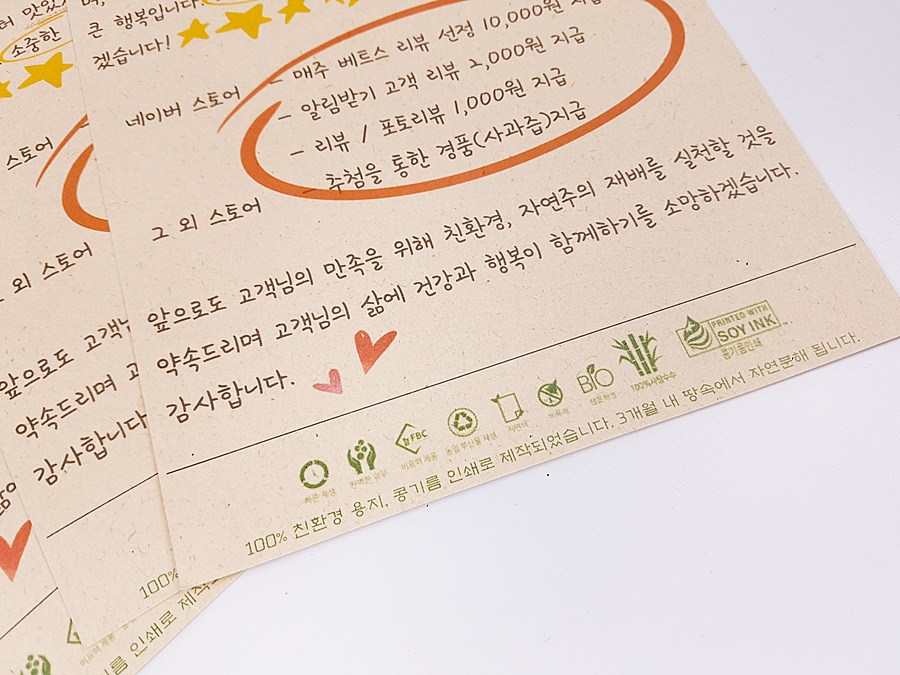 큰 행복입니다.
겠습니다!
네이버 스토어
- 매주 베트스 리뷰 선정 10,000원 지급
- 알림받기 고객 리뷰 2,000원 지급
- 리뷰 / 포토리뷰 1,000원 지급
- 추첨을 통한 경품(사과즙)지급
그 외 스토어
앞으로도 고객님의 만족을 위해 친환경, 자연주의 재배를 실천할 것을
약속드리며 고객님의 삶에 건강과 행복이 함께하기를 소망하겠습니다.
감사합니다.
빠른 재생
완벽한 염무
FBC
비표백 제품
농업 부산물 재생
BIO
생분해성
100%사탕수수
PRINTED WITH
SOY INK
콩기름인쇄
100% 친환경 용지, 콩기름 인쇄로 제작되었습니다. 3개월 내 땅속에서 자연분해 됩니다.
소중한
스토어
외 스토어
앞으로도 고객님
약속드리며 고
감사합니다
100%
비표백 제품
기름 인쇄로 제작